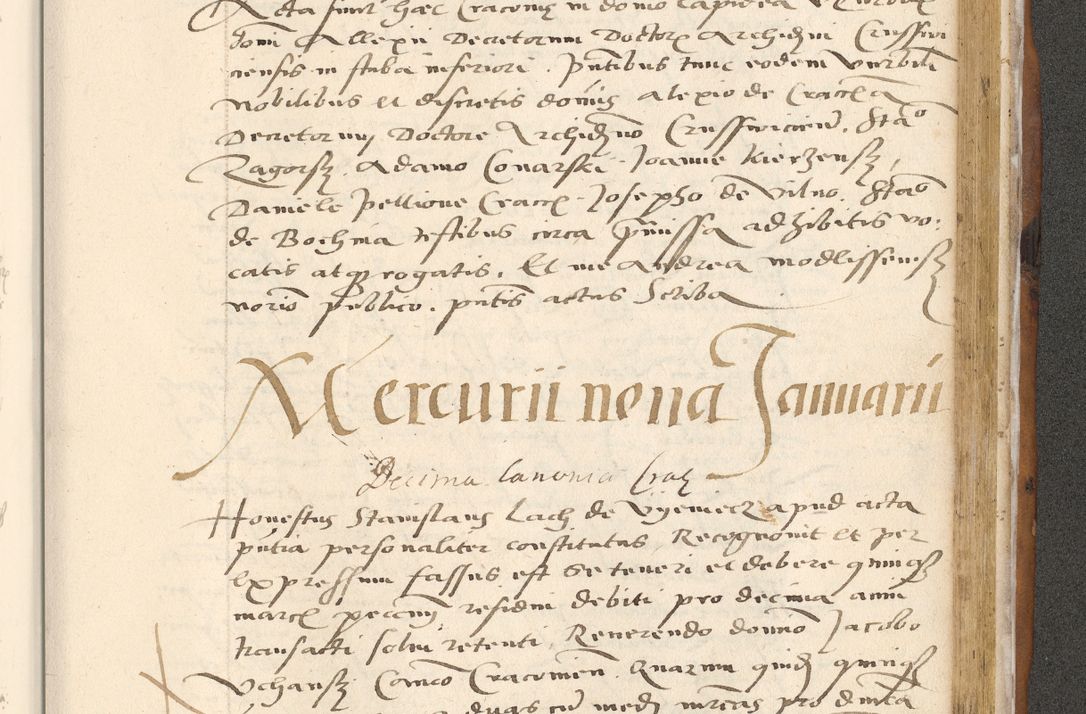 Acta sunt hæc Cracoviæ in domo lapidea
domi Allexii Decretorum Doctor Archidni Crusswi
ciensis in stuba inferiori. Pntibus tunc eodem Vnrbili
nobilibus et discretis domis Alexio de Craccꝫ
Decretorum Doctore Archidno Crusswicien. Stao
Zagorsky Adamo Conarski Joanne Kierzensky,
Daniele Pellione Cracc. Josepho de Vilno. Stao
de Bochnia testibus circa pmissa adhibitis vo:
catis atqꝫ rogatis, Et me Andrea Modlissewsky
norio publico. pntis actus Scriba
Mercurii nona Januarii
Decima Canonia Crac
Honestus Stanislaus Lach de Vyeniecz apud acta
pntia personaliter constitutus Recognovit et per
Expressum fassus est se teneri et debere quinqꝫ
marc pecun residui debiti pro decima anni
transacti solui retenti, Reverendo domino Jacobo
Vchansky Canco Cracovien. Quarum quidꝫ quinqꝫ
duas cu medi mrcas pro dnica